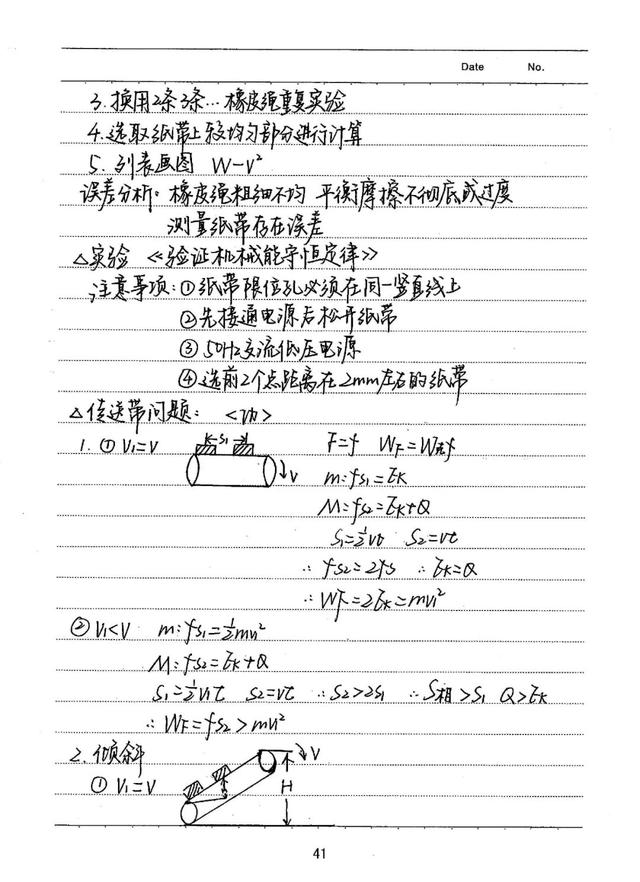 Date No.
3. 换用2条3条…橡皮绳重复实验
4. 选取纸带上较均匀部分进行计算
5. 列表画图 W-v²
误差分析: 橡皮绳粗细不均 平衡摩擦不彻底或过度
测量纸带存在误差
△实验 《验证机械能守恒定律》
注意事项:①纸带限位孔必须在同一竖直线上
②先接通电源后松开纸带
③50Hz交流低压电源
④选前2个点距离在2mm左右的纸带
△传送带问题:
1. ① V₁=V S₁ V F=f W_F=W克f
m: fs₁=Ek
M: fs₂=Ek+Q
S₁=½vt S₂=vt
∴ fs₂=2fs ∴ Ek=Q
∴ W_F=2Ek=mv₁²
② V₁<V m: fs₁=½mv₁²
M: fs₂=Ek+Q
S₁=½v₁t S₂=vt ∴ S₂>2S₁ ∴ S相>S₁ Q>Ek
∴ W_F=fs₂>mv₁²
2. 倾斜 V
① V₁=V H
41